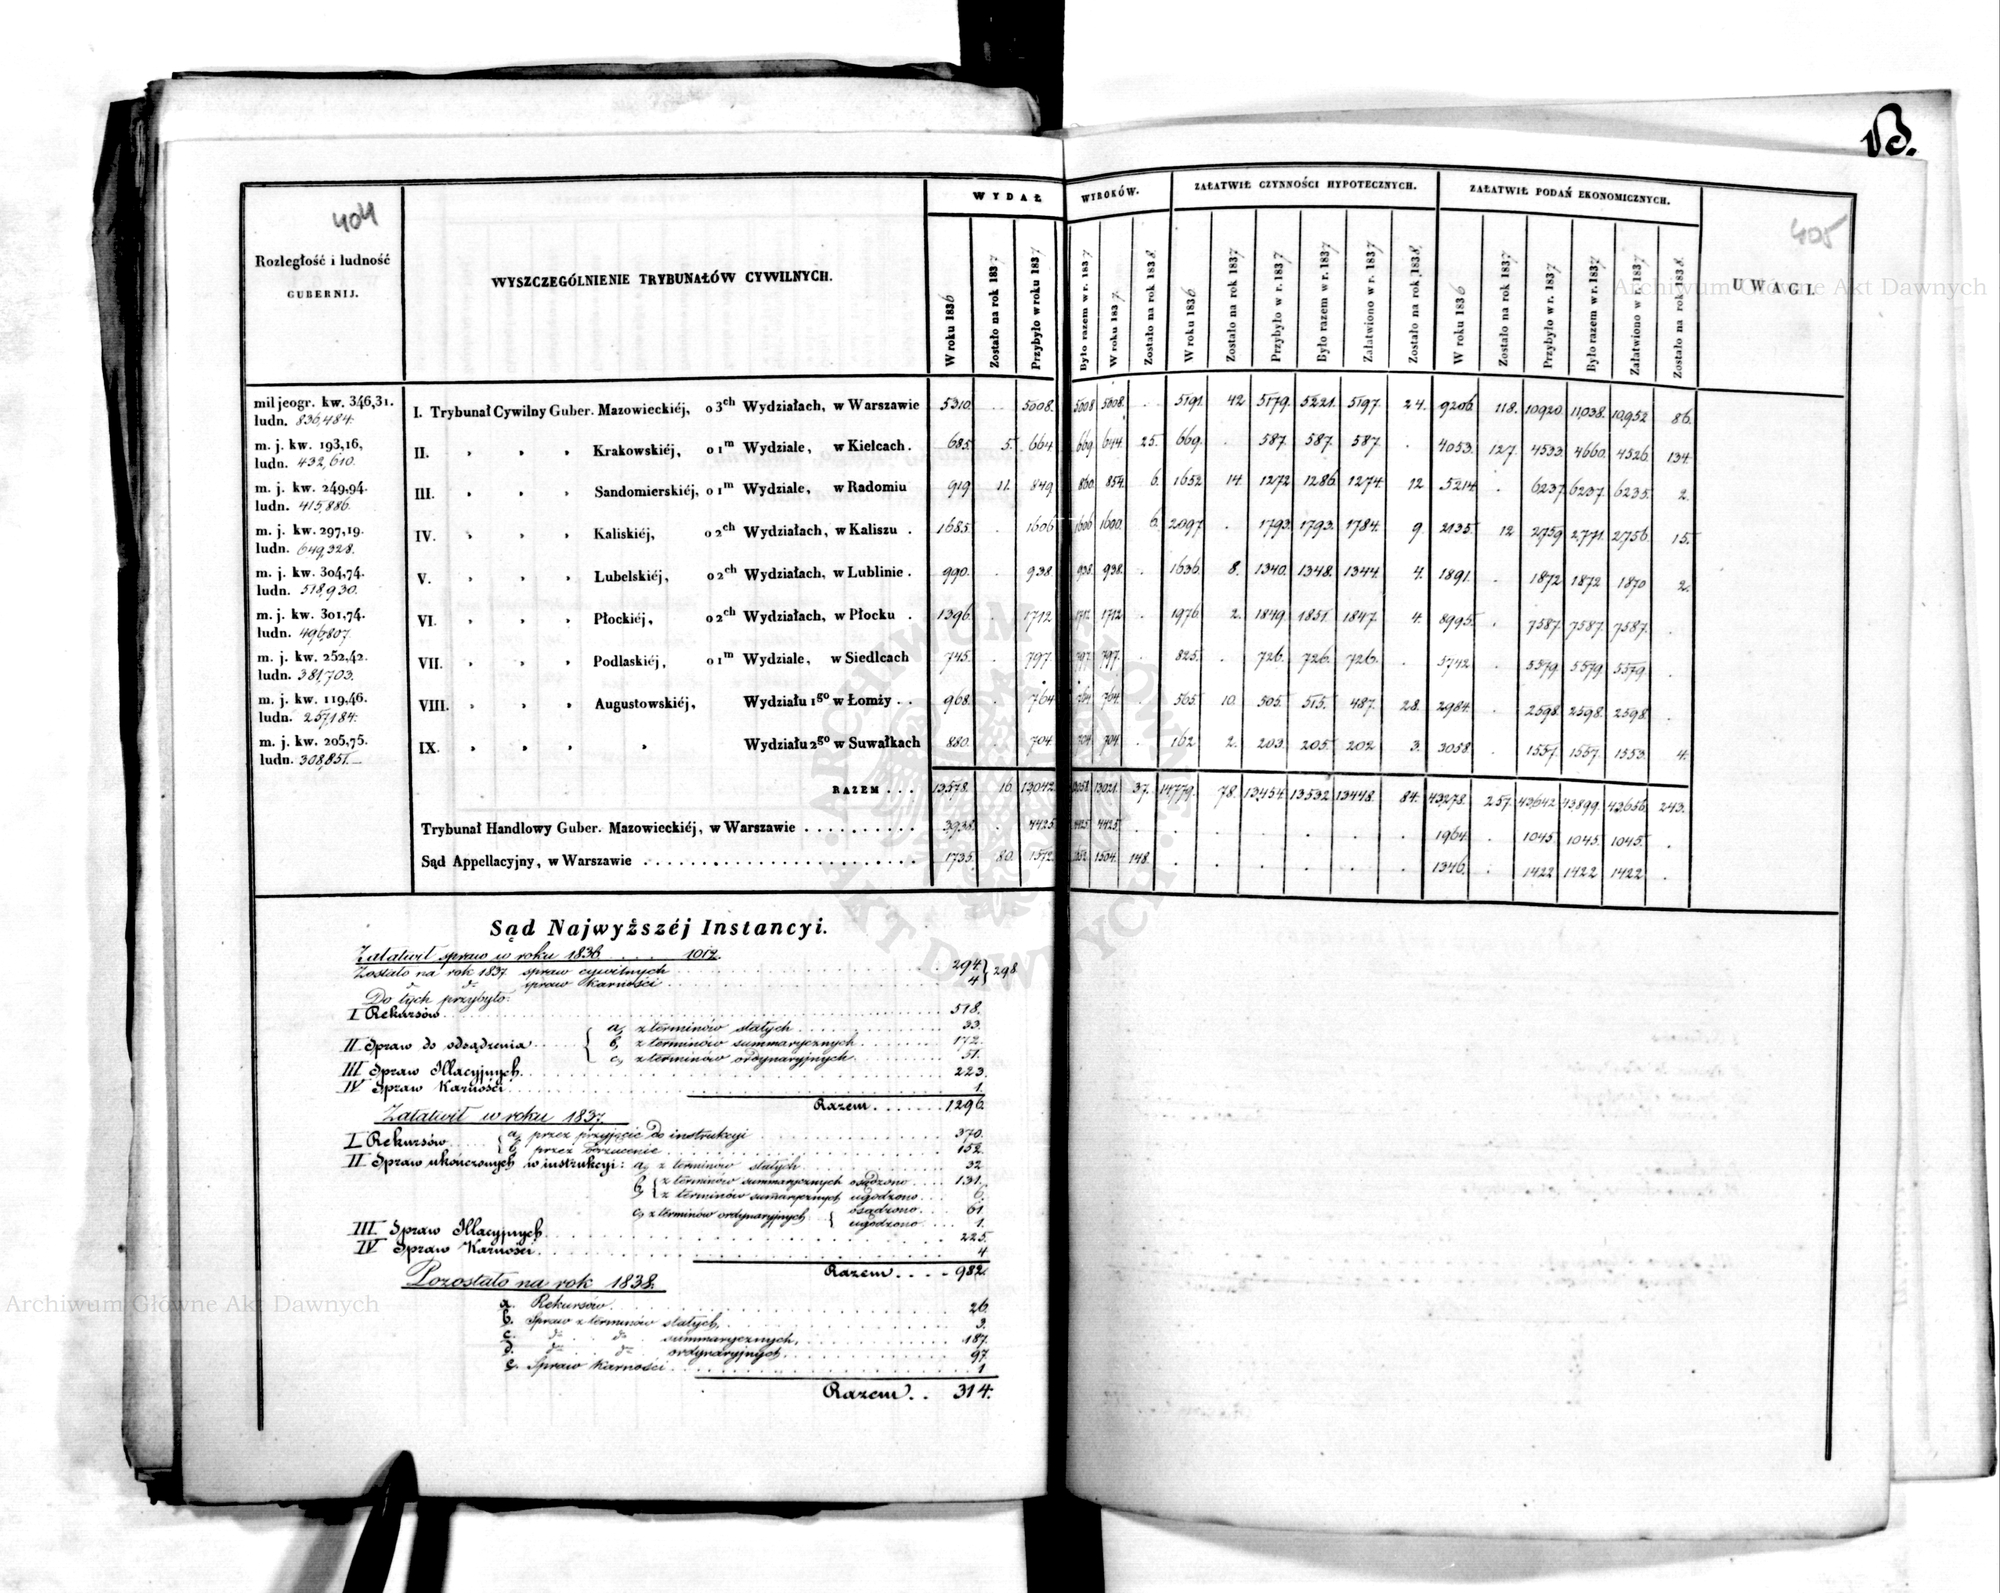 B.
404
405
Rozległość i ludność
GUBERNIJ.
WYSZCZEGÓLNIENIE TRYBUNAŁÓW CYWILNYCH.
WYDAŁ WYROKÓW.
ZAŁATWIŁ CZYNNOŚCI HYPOTECZNYCH.
ZAŁATWIŁ PODAŃ EKONOMICZNYCH.
UWAGI.
W roku 1836 Zostało na rok 1837 Przybyło w roku 1837 Było razem w r. 1837 W roku 1837 Zostało na rok 1838
W roku 1836 Zostało na rok 1837 Przybyło w r. 1837 Było razem w r. 1837 Załatwiono w r. 1837 Zostało na rok 1838
W roku 1836 Zostało na rok 1837 Przybyło w r. 1837 Było razem w r. 1837 Załatwiono w r. 1837 Zostało na rok 1838
mil jeogr. kw. 346,31.
ludn. 836,484.
I. Trybunał Cywilny Guber. Mazowieckiéj, o 3ch Wydziałach, w Warszawie 5310. . 5008. 5008 5008. . 5191. 42 5179. 5221. 5197. 24. 9206 118. 10920. 11,038. 10,952 86.
m. j. kw. 193,16,
ludn. 432,610.
II. » » » Krakowskiéj, o 1m Wydziale, w Kielcach. 685. 5. 664 669. 644. 25. 669. . 587. 587. 587. . 4053. 127. 4533. 4660. 4526. 134.
m. j. kw. 249,94.
ludn. 415,886.
III. » » » Sandomierskiéj, o 1m Wydziale, w Radomiu 919 11. 849 860. 854. 6. 1652 14. 1272 1286. 1274. 12 5214 . 6237. 6237. 6235. 2.
m. j. kw. 297,19.
ludn. 649,328.
IV. » » » Kaliskiéj, o 2ch Wydziałach, w Kaliszu . 1685. . 1606 1606 1600. 6. 2097. . 1793. 1793. 1784. 9. 2135. 12 2759 2,771. 2,756. 15.
m. j. kw. 304,74.
ludn. 518,930.
V. » » » Lubelskiéj, o 2ch Wydziałach, w Lublinie . 990. . 938. 938. 938. . 1636. 8. 1340. 1348. 1344. 4. 1891. . 1872 1872 1870 2.
m. j. kw. 301,74.
ludn. 496,807.
VI. » » » Płockiéj, o 2ch Wydziałach, w Płocku . 1396. . 1712 1712 1712 . 1976. 2. 1849. 1851. 1847. 4. 8995. . 7587. 7587. 7587. .
m. j. kw. 252,42.
ludn. 381,703.
VII. » » » Podlaskiéj, o 1m Wydziale, w Siedlcach 745. . 797. 797. 797. . 825. . 726. 726. 726. . 5742 . 5579 5579 5579. .
m. j. kw. 119,46.
ludn. 257,184.
VIII. » » » Augustowskiéj, Wydziału 1go w Łomży . . 968. . 764 764 764. . 565. 10. 505. 515. 487. 28. 2984. . 2598. 2598. 2598. .
m. j. kw. 205,75.
ludn. 308,851.
IX. » » » » Wydziału 2go w Suwałkach 880. . 704. 704. 704. . 162 2. 203. 205. 202 3. 3058 . 1557. 1557. 1553. 4.
RAZEM . . . 13,578. 16. 13042. 13058. 13021. 37. 14779. 78. 13,454. 13532 13448. 84. 43278. 257. 43,642 43,899. 43,656. 243.
Trybunał Handlowy Guber. Mazowieckiéj, w Warszawie . . . . . . . . . . 3938. . 4425. 4425 4425. . . . . . . . 1964. . 1045. 1045. 1045. .
Sąd Appellacyjny, w Warszawie . . . . . . . . . . 1735. 80. 1572. 1652. 1504. 148. . . . . . . 1346. . 1422 1422 1422 .
Sąd Najwyższéj Instancyi.
Załatwił spraw w roku 1836 . . . . 1012.
Zostało na rok 1837 spraw cywilnych . . . 294 } 298
do do spraw Karności . . . 4
Do tych przybyło:
I Rekursów . . . 518.
a, z terminów stałych . . . 33.
II Spraw do osądzenia { b, z terminów summarycznych . . . 172.
c, z terminów ordynaryjnych . . . 51.
III Spraw Illacyjnych . . . 223.
IV Spraw Karności . . . 1.
Razem . . . . . . 1296.
Załatwił w roku 1837.
I Rekursów { a, przez przyjęcie do instrukcyi . . . 370.
b, przez odrzucenie . . . 152.
II Spraw ukończonych w instrukcyi: a, z terminów stałych . . . 32
b, { z terminów summarycznych osądzono . . . 131.
z terminów sumarycznych ugodzono . . . 6.
c, z terminów ordynaryjnych { osądzono . . . 61
ugodzono . . . 1.
III Spraw Illacyjnych . . . 225.
IV Spraw Karności . . . 4
Razem . . . . 982.
Pozostało na rok 1838.
a. Rekursów . . . 26.
b. Spraw z terminów stałych . . . 3.
c. do do summarycznych . . . 187.
d. do do ordynaryjnych . . . 97.
e. Spraw Karności . . . 1
Razem . . 314.
Archiwum Główne Akt Dawnych
Archiwum Główne Akt Dawnych
ARCHIWUM GŁÓWNE AKT DAWNYCH